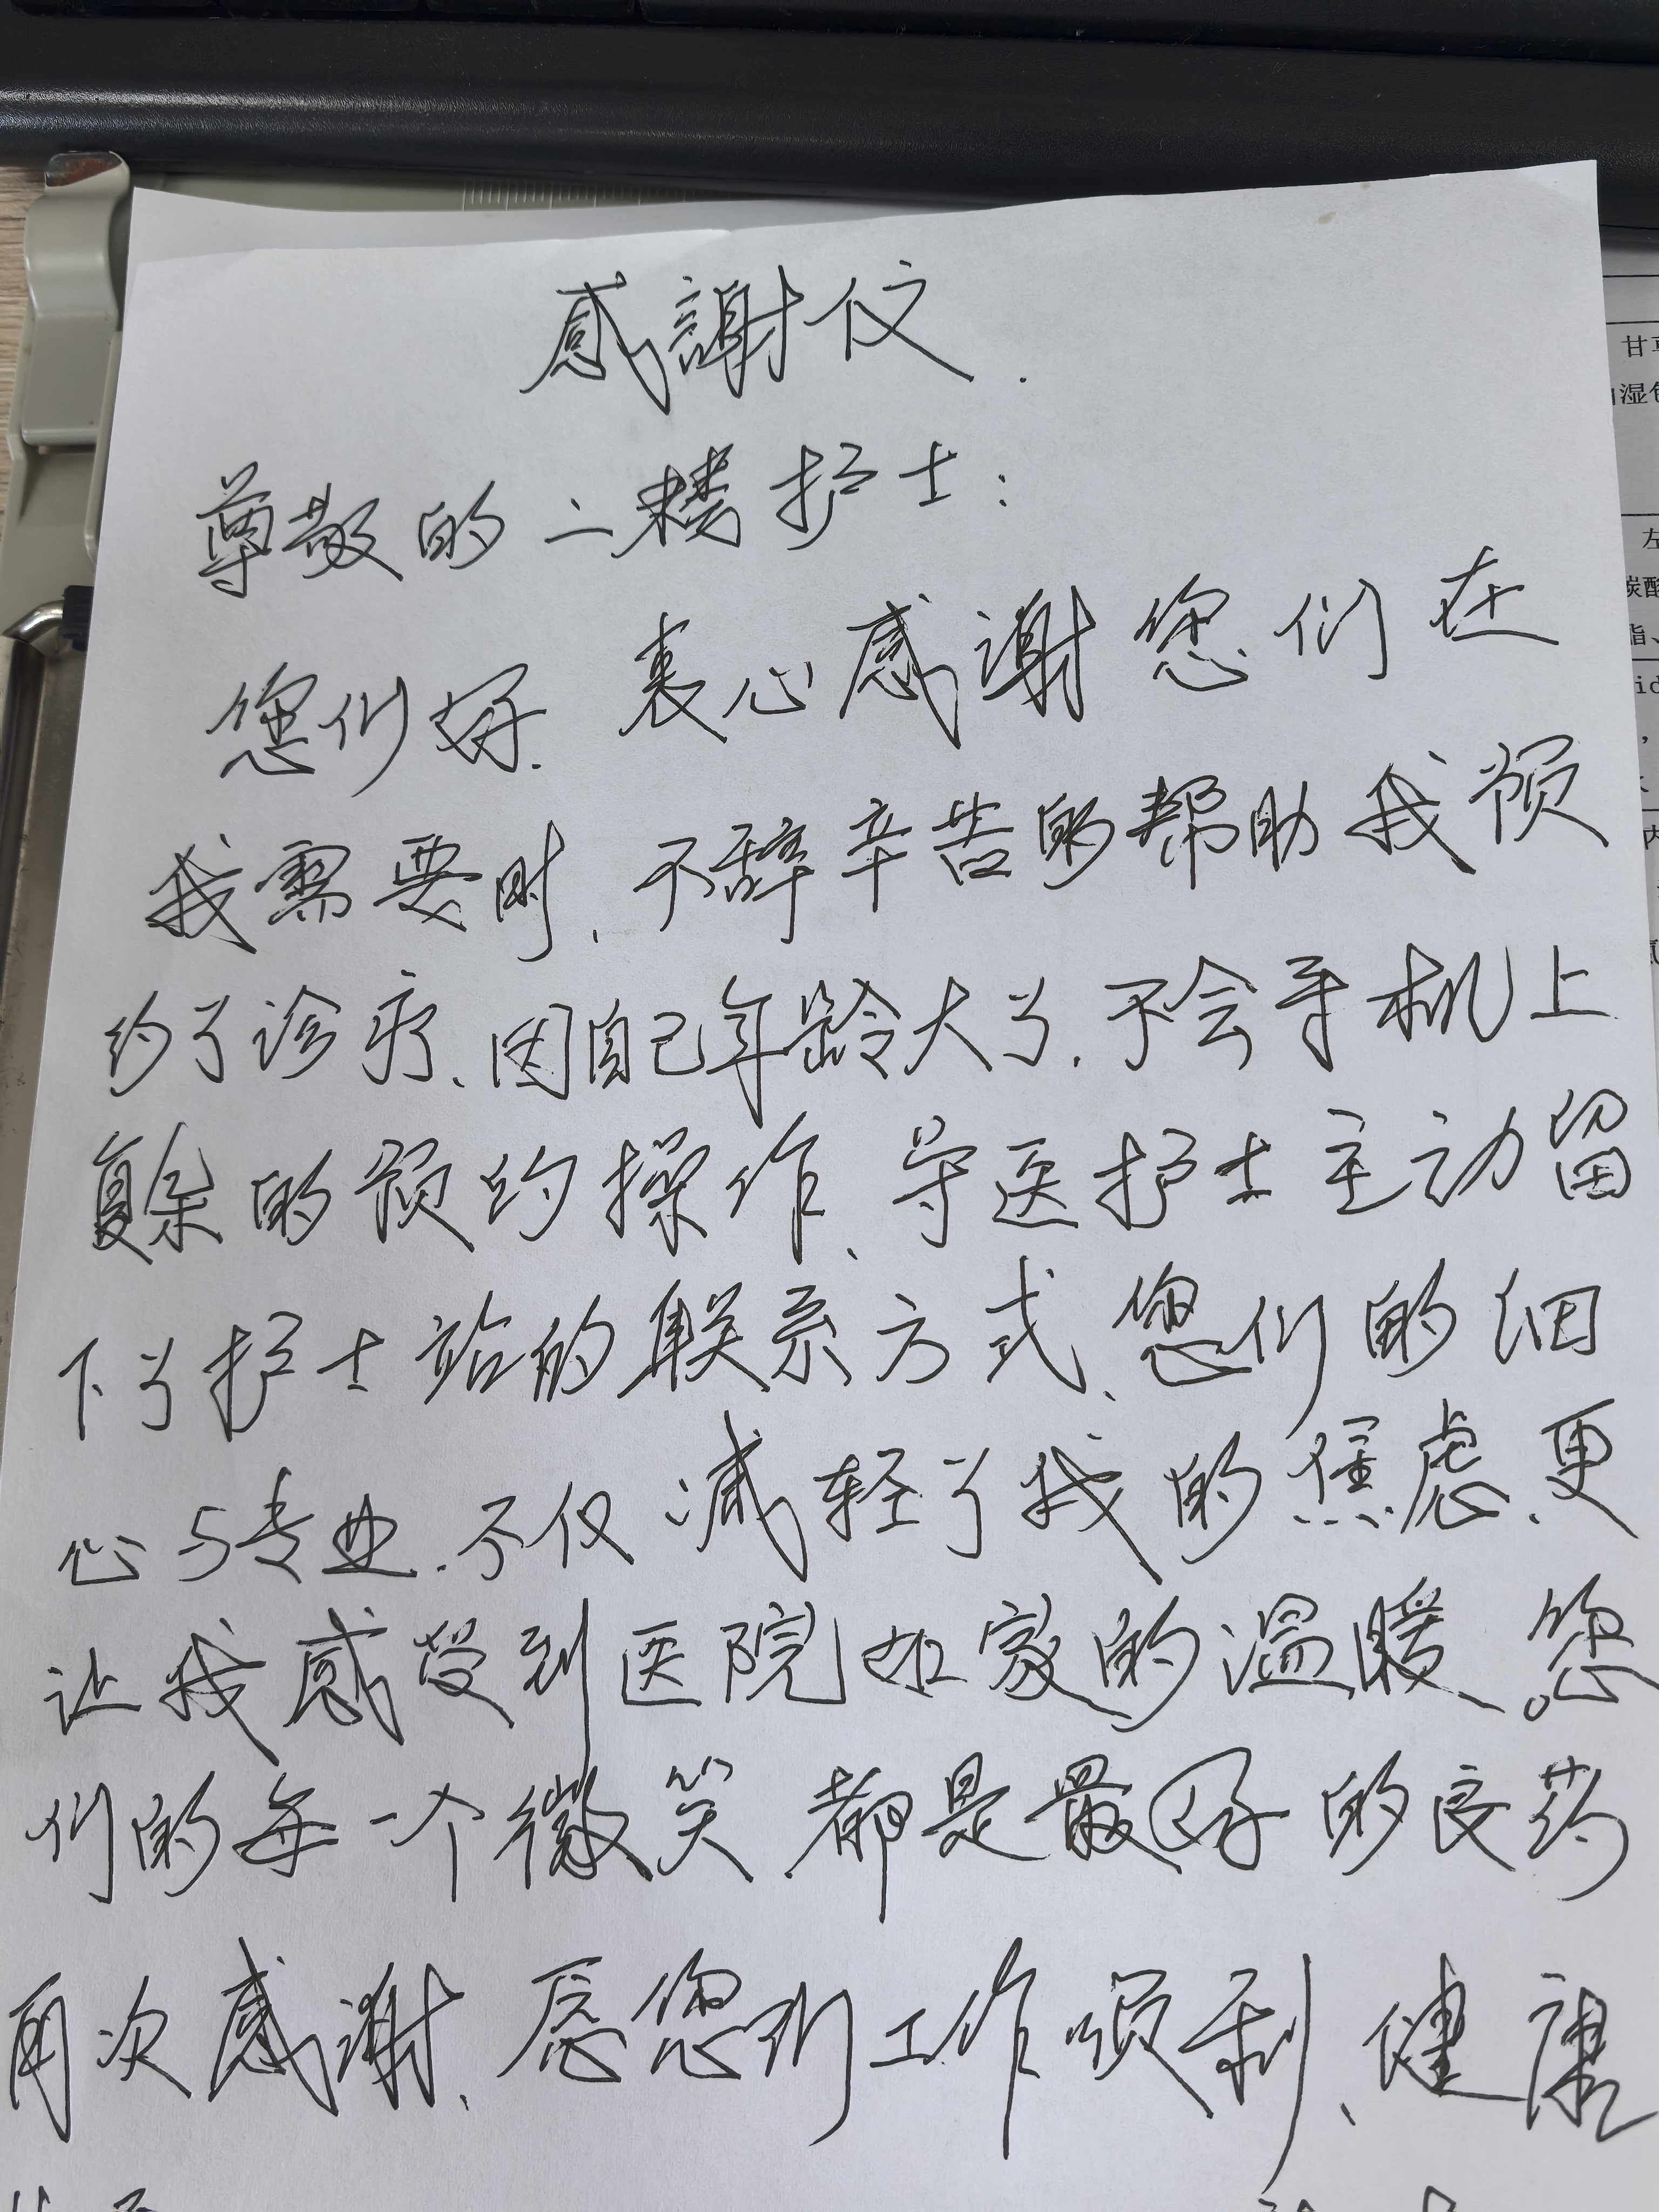 感謝仪.
尊敬的二楼护士:
您们好.衷心感谢您们在
我需要时、不辞辛苦的帮助我预
约了诊疗、因自己年龄大了.不会手机上
复杂的预约操作、导医护士主动留
下了护士站的联系方式、您们的细
心与专业.不仅减轻了我的焦虑、更
让我感受到医院如家的温暖。您
们的每一个微笑都是最好的良药
再次感谢、愿您们工作顺利、健康
甘草
湿
左
碳酸
脂、
id
内